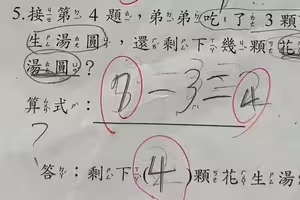 5.接第4題，弟弟吃了3顆
生湯圓，還剩下幾顆花
湯圓？
算式：7－3＝4
答：剩下(4)顆花生湯